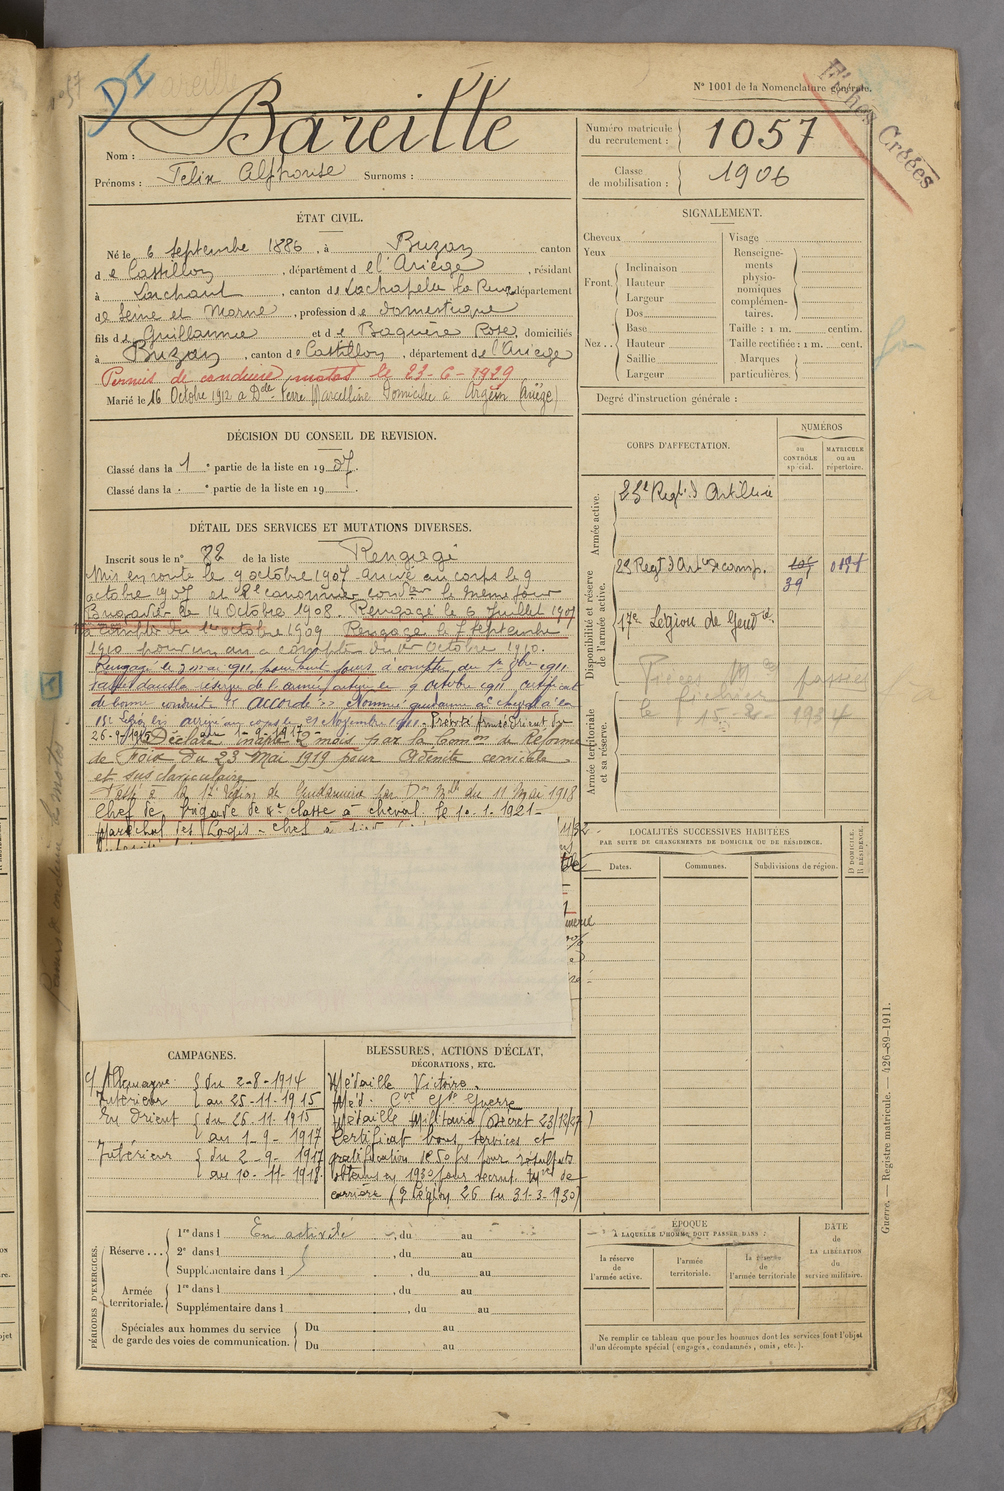 DI
N° 1001 de la Nomenclature générale.
Fiches Créées
Nom : Bareille
Prénoms : Felix Alphonse Surnoms :
Numéro matricule du recrutement : 1057
Classe de mobilisation : 1906
ÉTAT CIVIL.
Né le 6 Septembre 1886, à Buzan canton
de Castillon, département de l'Ariège, résidant
à Lachaut, canton de Lachapelle la Reine, département
de Seine et Marne, profession de domestique
fils de Guillaume et de Baquère Rose, domiciliés
à Buzan, canton de Castillon, département de l'Ariège
Permis de conduire motos le 23-6-1929
Marié le 16 Octobre 1912 à Dlle Ferré Marcelline Domiciliée à Argein (Ariège)
SIGNALEMENT.
Cheveux
Yeux
Front. Inclinaison
Hauteur
Largeur
Nez .. Dos
Base
Hauteur
Saillie
Largeur
Visage
Renseignements physionomiques complémentaires.
Taille : 1 m. centim.
Taille rectifiée : 1 m. cent.
Marques particulières.
Degré d'instruction générale :
DÉCISION DU CONSEIL DE REVISION.
Classé dans la 1e partie de la liste en 1907.
Classé dans la e partie de la liste en 19 .
DÉTAIL DES SERVICES ET MUTATIONS DIVERSES.
Inscrit sous le n° 82 de la liste Rengagé
Mis en route le 9 octobre 1907 arrivé au corps le 9
octobre 1907 et 2e canonnier condr le même jour
Brigadier le 14 Octobre 1908. Rengagé le 6 Juillet 1909
à compter du 1er octobre 1909 Rengagé le 7 Septembre
1910 pour un an à compter du 1er Octobre 1910.
Rengagé le 3 mai 1911 pour huit jours à compter du 1er 8bre 1911
passé dans la réserve de l'armée active le 9 octobre 1911 certificat
de bonne conduite "accordé". Nommé gendarme à cheval à la
26-9-1915 au 1-9-1917
Déclaré inapte 2 mois par la Comon de Réforme
de Foix du 23 Mai 1919 pour adénite cervicale
et sus claviculaire
Passé à la 17e Légion de Gendarmerie par Don Mlle du 11 Mai 1918
Chef de brigade de 4e classe à cheval le 10-1-1921-
Maréchal des Logis-Chef
CORPS D'AFFECTATION.
NUMÉROS
au CONTRÔLE spécial.
MATRICULE ou au répertoire.
Armée active.
23e Regt d'Artillerie
Disponibilité et réserve de l'armée active.
23 Regt d'Artie de camp. 39
17e Légion de Gendie.
Armée territoriale et sa réserve.
Pièces Mles passées
fichier
le 15-2-1934
LOCALITÉS SUCCESSIVES HABITÉES
PAR SUITE DE CHANGEMENTS DE DOMICILE OU DE RÉSIDENCE.
Dates. Communes. Subdivisions de région. D DOMICILE. R RÉSIDENCE.
CAMPAGNES.
c/ Allemagne
Intérieur du 2-8-1914
au 25-11-1915
En Orient du 26-11-1915
au 1-9-1917
Intérieur du 2-9-1917
au 10-11-1918.
BLESSURES, ACTIONS D'ÉCLAT,
DÉCORATIONS, ETC.
Médaille Victoire.
Méd. Cve Gde Guerre
Médaille Militaire (Décret 23/12/27)
Certificat bons services et
gratification de 50 frs pour résultats
obtenus en 1930 pour recrut. de
carrière (O Légion 26 du 31-3-1930)
PÉRIODES D'EXERCICES.
Réserve ... 1re dans l En activité, du au
2e dans l , du au
Supplémentaire dans l , du au
Armée territoriale. 1re dans l , du au
Supplémentaire dans l , du au
Spéciales aux hommes du service de garde des voies de communication. Du au
Du au
ÉPOQUE
À LAQUELLE L'HOMME DOIT PASSER DANS :
la réserve de l'armée active.
l'armée territoriale.
la réserve de l'armée territoriale
DATE DE LA LIBÉRATION du service militaire.
Ne remplir ce tableau que pour les hommes dont les services font l'objet
d'un décompte spécial (engagés, condamnés, omis, etc.).
Guerre. — Registre matricule. — 426-89-1911.